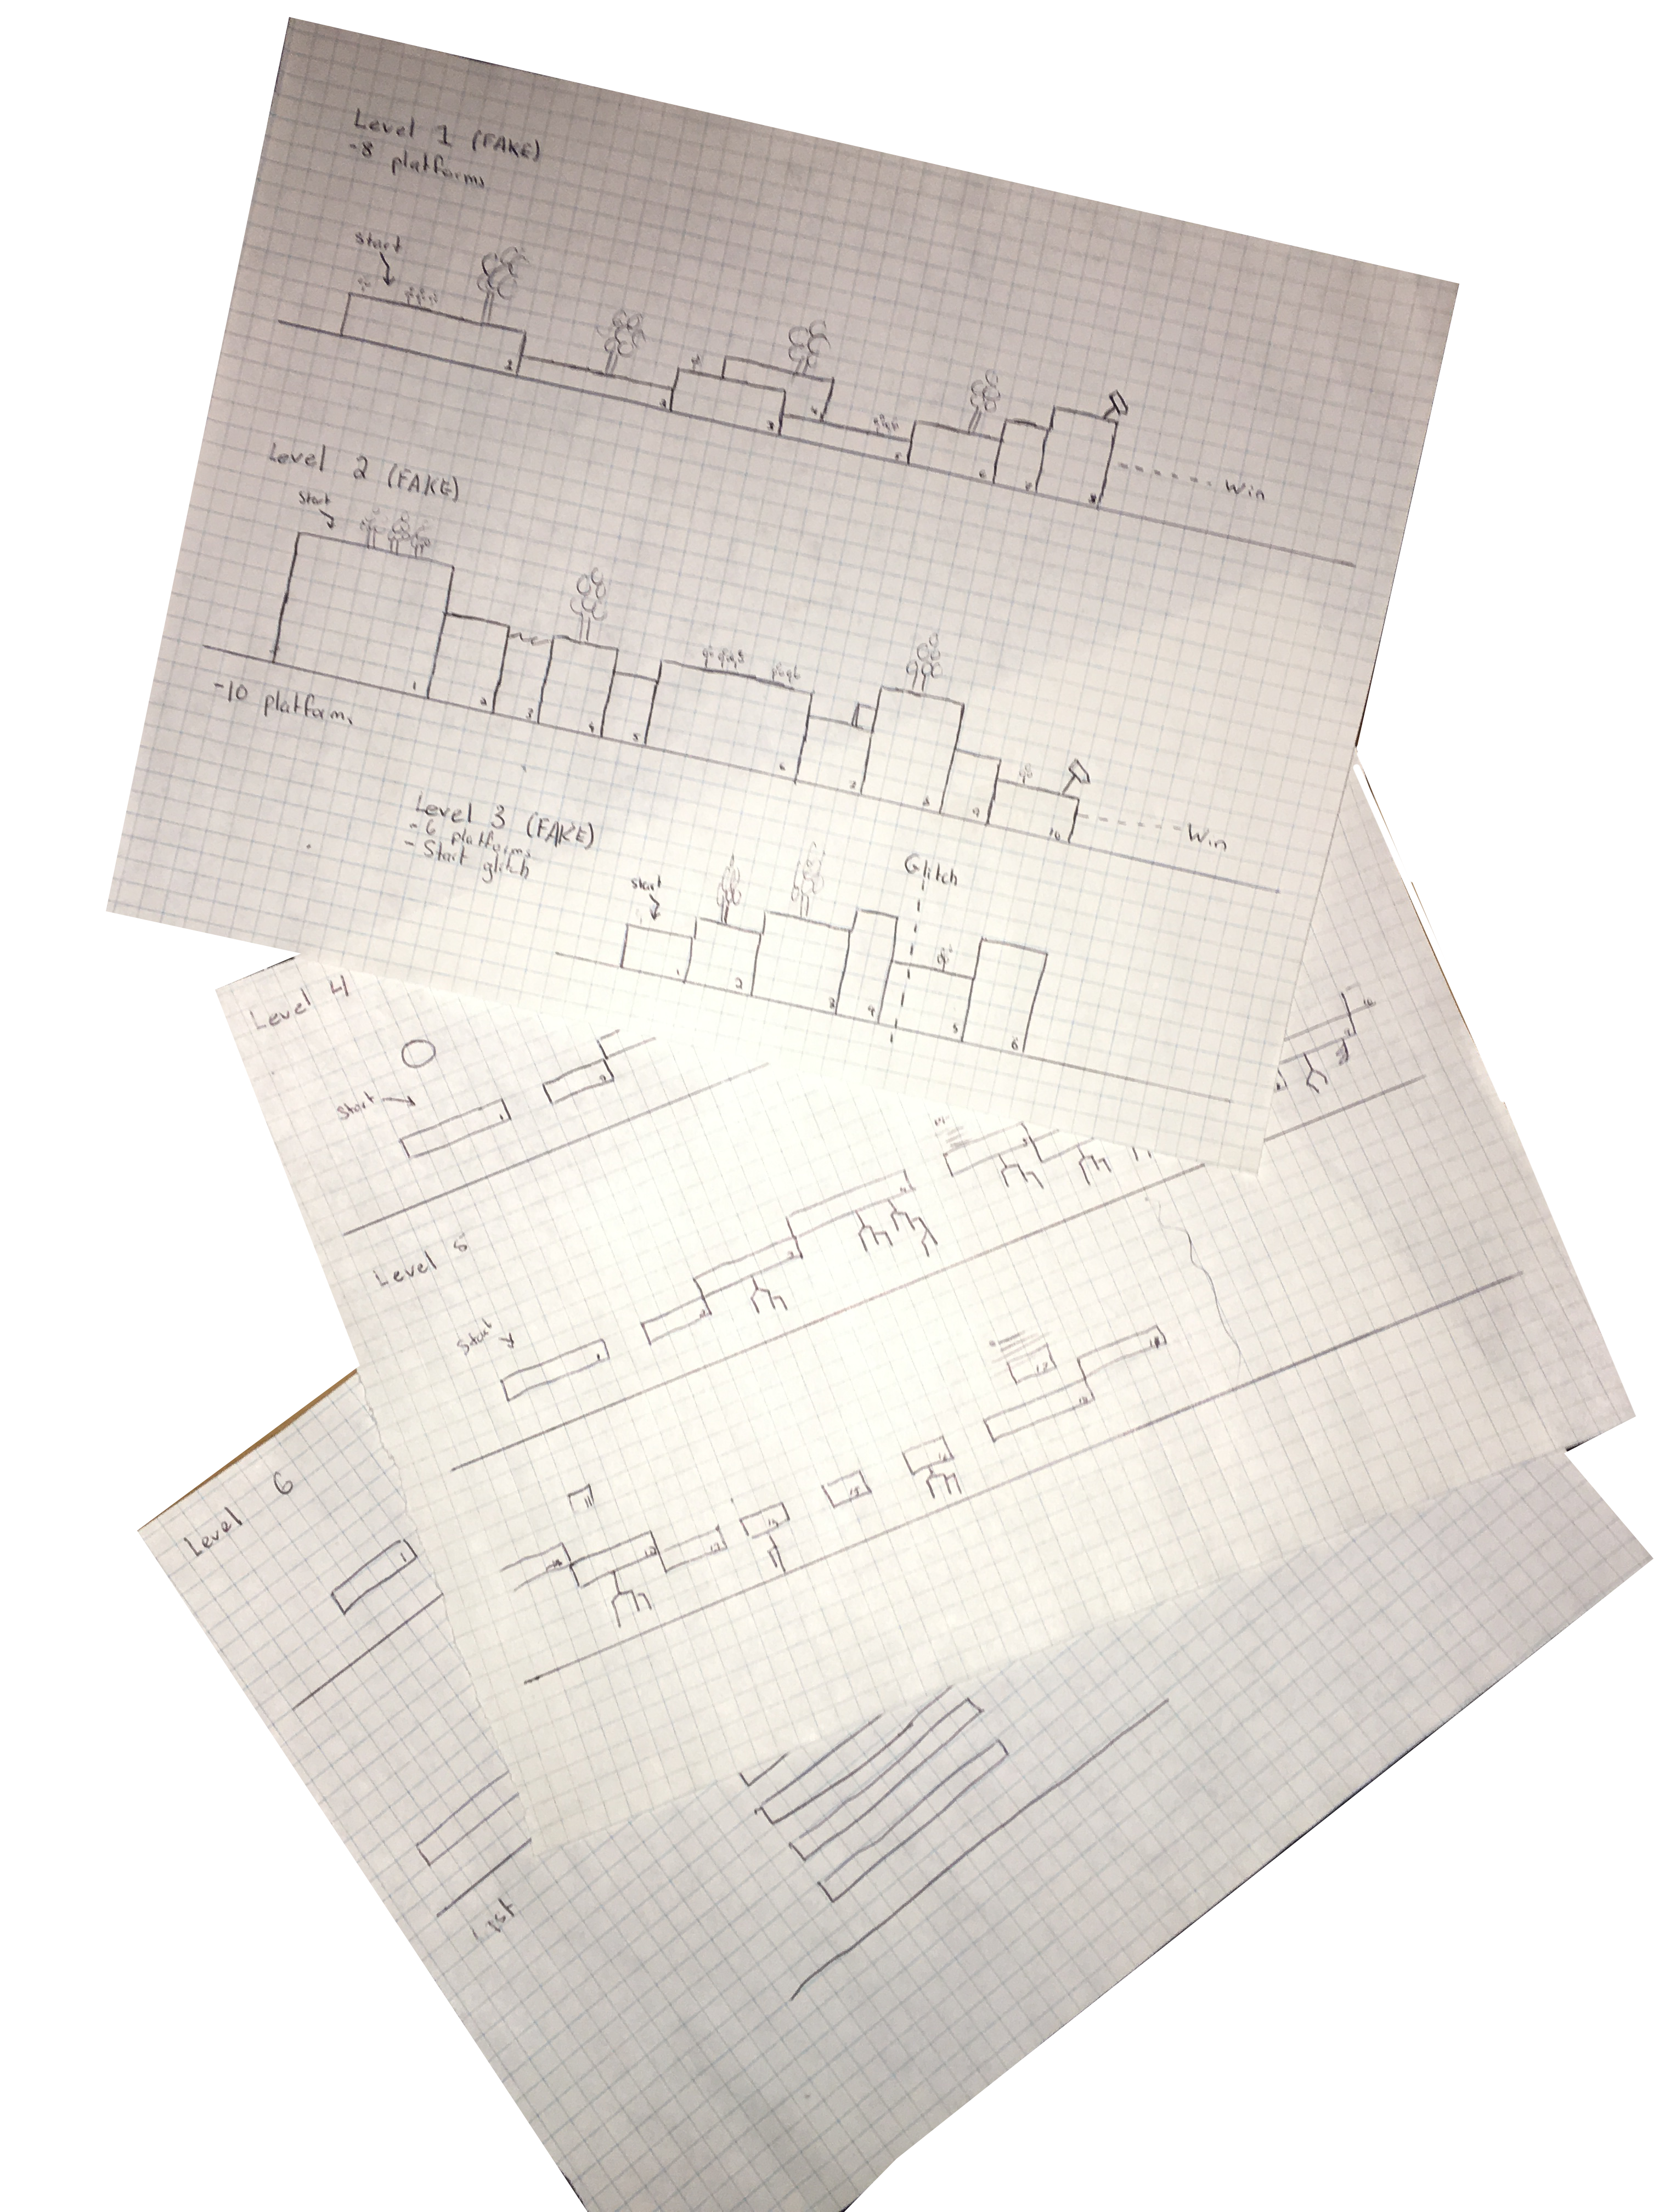 Level 1 (FAKE)
-8 platforms
Start
1
2
3
4
5
6
7
8
Win
Level 2 (FAKE)
Start
-10 platforms
1
2
3
4
5
6
7
8
9
10
Win
Level 3 (FAKE)
- 6 platforms
- Start glitch
Start
Glitch
1
2
3
4
5
6
Level 4
Start
1
2
Level 5
Start
1
2
3
4
11
12
13
Level 6
1